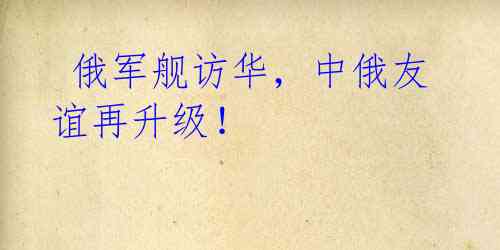 俄军舰访华，中俄友
谊再升级！